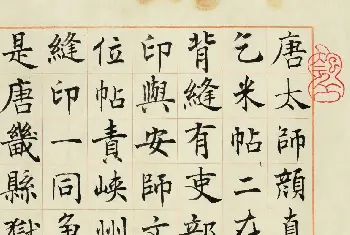 唐太師顏真
乞米帖二在
背縫有吏部
印與安師文
位帖責峽州
縫印一同
是唐畿縣獄